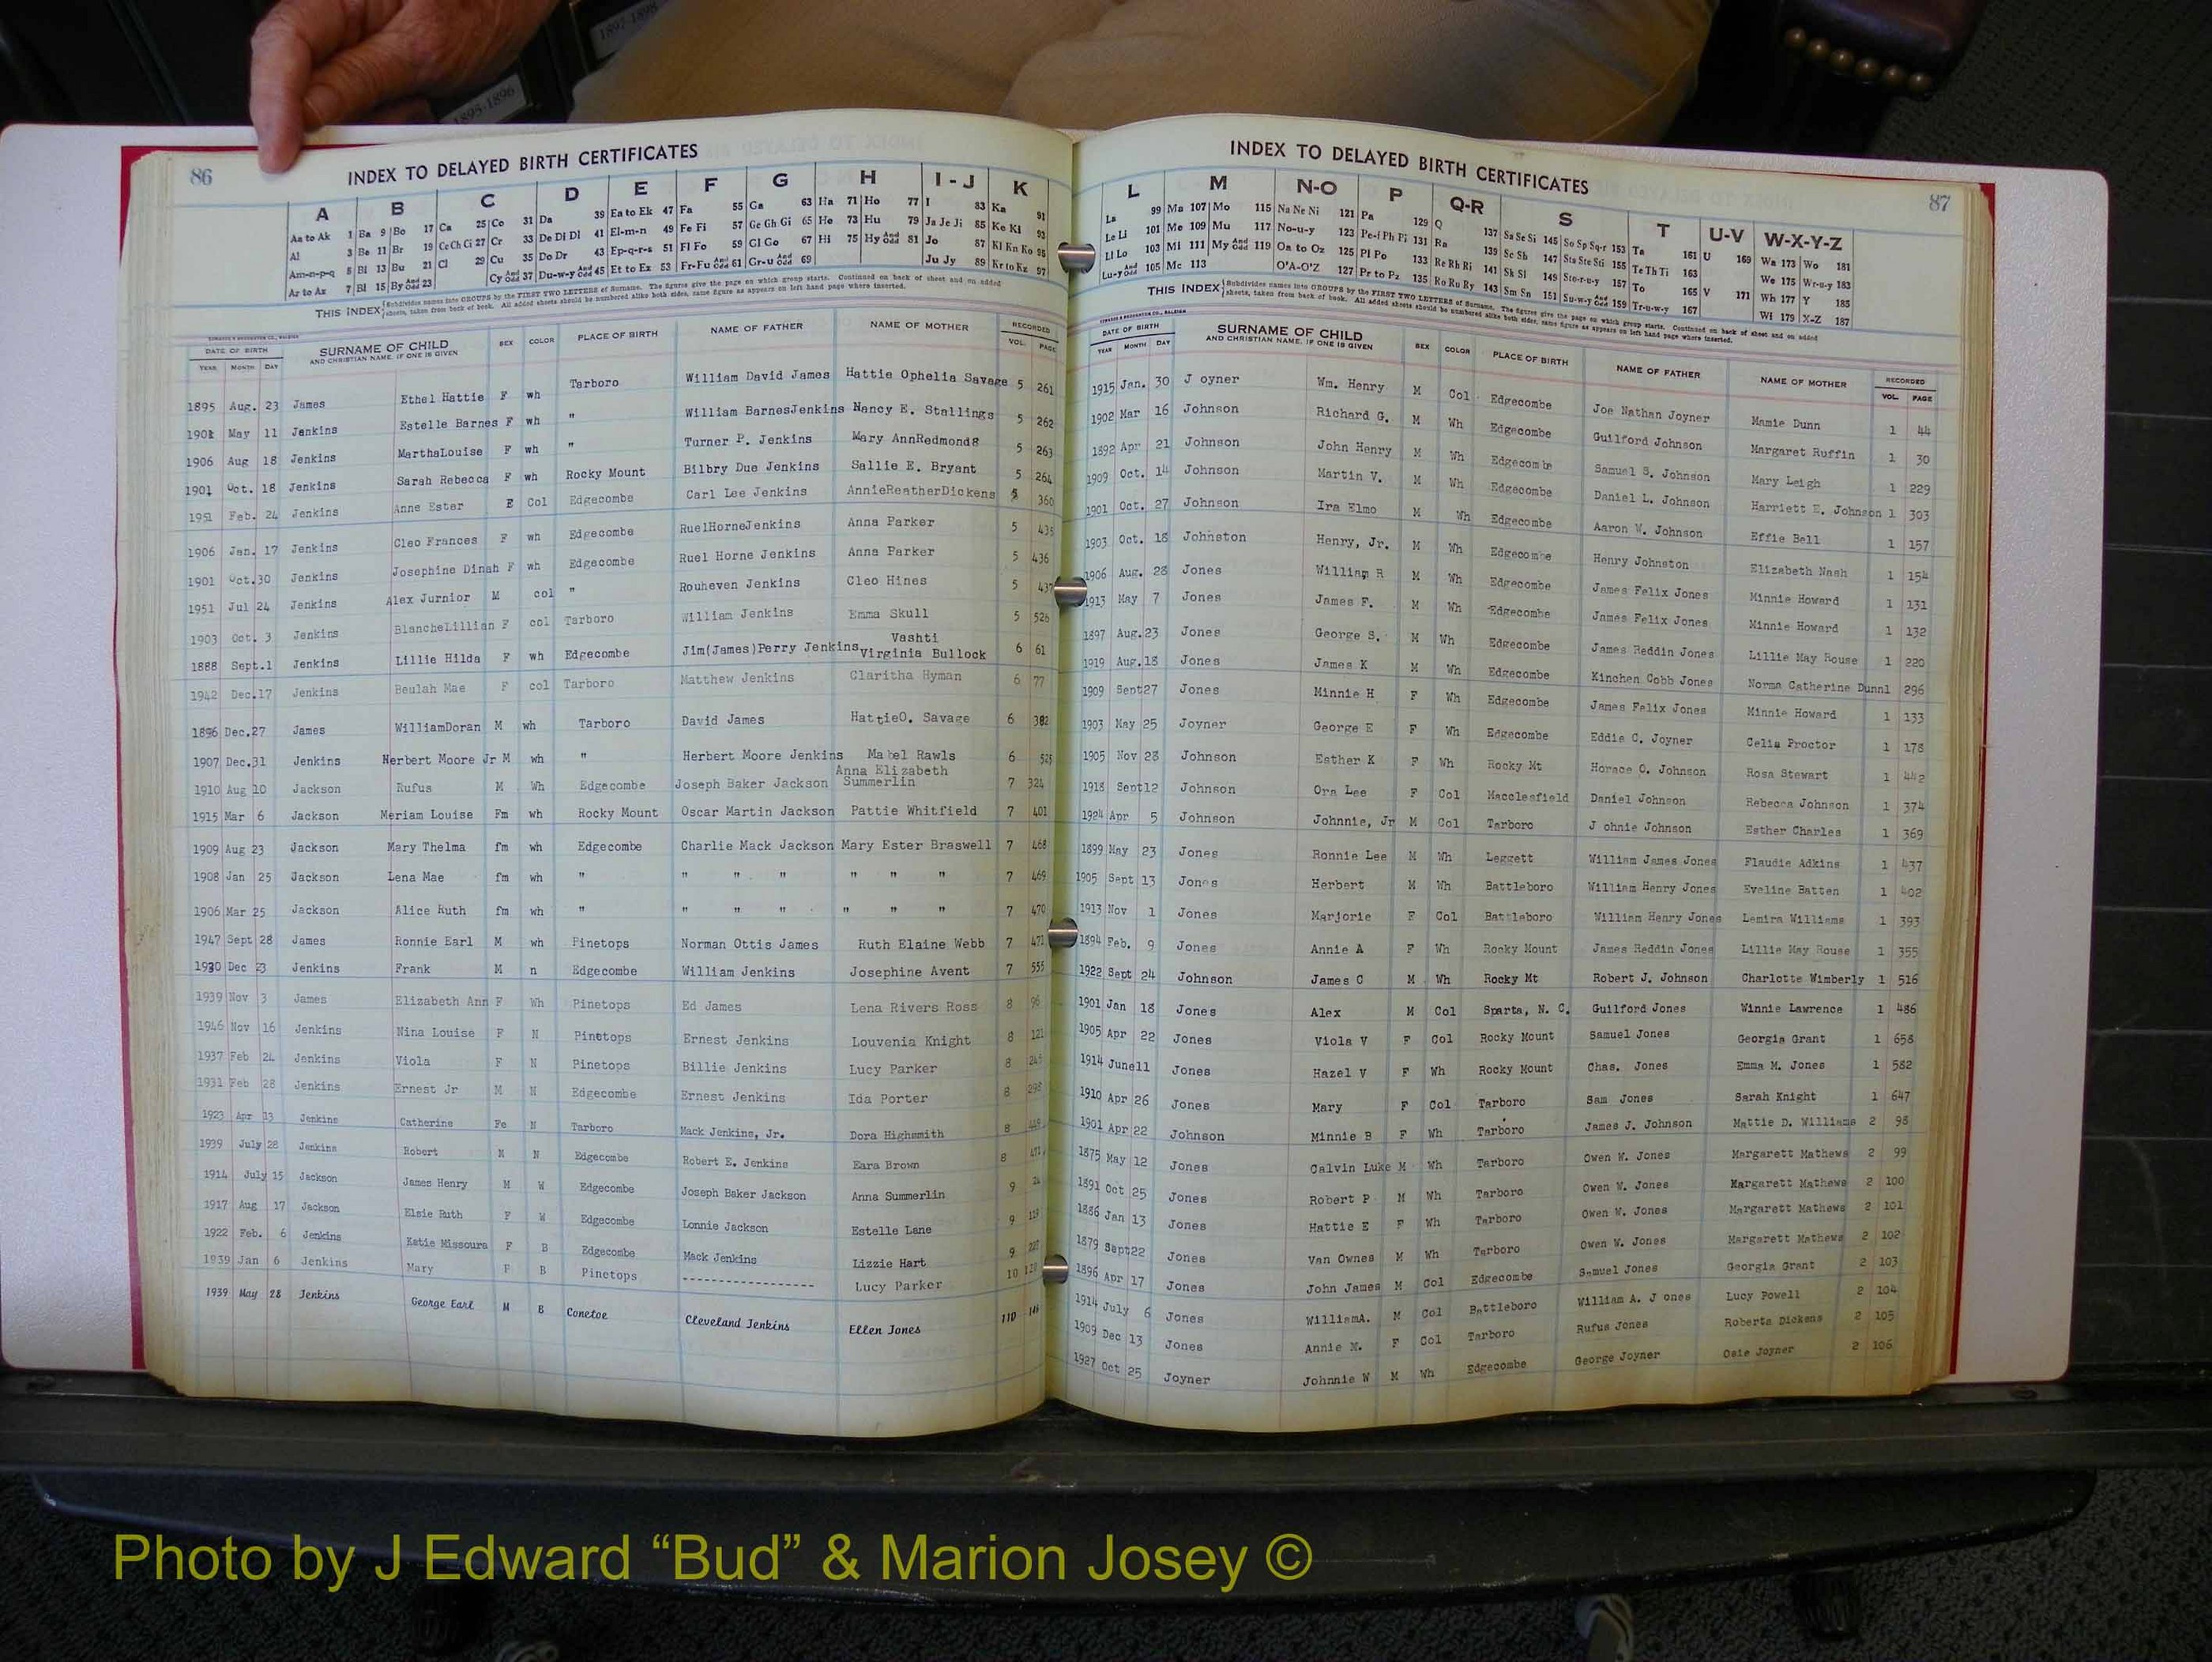 1897-1898
1895-1896
86
INDEX TO DELAYED BIRTH CERTIFICATES
A B C D E F G H I - J K
Aa to Ak 1 Ba 9 Bo 17 Ca 25 Co 31 Da 39 Ea to Ek 47 Fa 55 Ga 63 Ha 71 Ho 77 I 83 Ka 91
Al 3 Be 11 Br 19 Ce Ch Ci 27 Cr 33 De Di Dl 41 El-m-n 49 Fe Fi 57 Ge Gh Gi 65 He 73 Hu 79 Ja Je Ji 85 Ke Kl 93
Am-n-p-q 5 Bi 13 Bu 21 Cl 29 Cu 35 Do Dr 43 Ep-q-r-s 51 Fl Fo 59 Gl Go 67 Hi 75 Hy And Odd 81 Jo 87 Kl Kn Ko 95
Ar to Az 7 Bl 15 By And Odd 23 Cy And Odd 37 Du-w-y And Odd 45 Et to Ez 53 Fr-Fu And Odd 61 Gr-u And Odd 69 Ju Jy 89 Kr to Kz 97
THIS INDEX Subdivides names into GROUPS by the FIRST TWO LETTERS of Surname. The figures give the page on which group starts. Continued on back of sheet and on added
sheets, taken from back of book. All added sheets should be numbered alike both sides, same figure as appears on left hand page where inserted.
DATE OF BIRTH SURNAME OF CHILD SEX COLOR PLACE OF BIRTH NAME OF FATHER NAME OF MOTHER RECORDED
YEAR MONTH DAY AND CHRISTIAN NAME, IF ONE IS GIVEN VOL. PAGE
1895 Aug. 23 James Ethel Hattie F wh Tarboro William David James Hattie Ophelia Savage 5 261
1901 May 11 Jenkins Estelle Barnes F wh " William BarnesJenkins Nancy E. Stallings 5 262
1906 Aug 18 Jenkins MarthaLouise F wh " Turner P. Jenkins Mary AnnRedmond 5 263
1901 Oct. 18 Jenkins Sarah Rebecca F wh Rocky Mount Bilbry Due Jenkins Sallie E. Bryant 5 264
1951 Feb. 24 Jenkins Anne Ester E Col Edgecombe Carl Lee Jenkins AnnieReatherDickens 5 360
1906 Jan. 17 Jenkins Cleo Frances F wh Edgecombe RuelHorneJenkins Anna Parker 5 435
1901 Oct.30 Jenkins Josephine Dinah F wh Edgecombe Ruel Horne Jenkins Anna Parker 5 436
1951 Jul 24 Jenkins Alex Jurnior M col " Rouheven Jenkins Cleo Hines 5 437
1903 Oct. 3 Jenkins BlancheLillian F col Tarboro William Jenkins Emma Skull 5 526
1888 Sept.1 Jenkins Lillie Hilda F wh Edgecombe Jim(James)Perry Jenkins Vashti Virginia Bullock 6 61
1942 Dec.17 Jenkins Beulah Mae F col Tarboro Matthew Jenkins Claritha Hyman 6 77
1896 Dec.27 James WilliamDoran M wh Tarboro David James HattieO. Savage 6 382
1907 Dec.31 Jenkins Herbert Moore Jr M wh " Herbert Moore Jenkins Mabel Rawls 6 525
1910 Aug 10 Jackson Rufus M Wh Edgecombe Joseph Baker Jackson Anna Elizabeth Summerlin 7 324
1915 Mar 6 Jackson Meriam Louise Fm wh Rocky Mount Oscar Martin Jackson Pattie Whitfield 7 401
1909 Aug 23 Jackson Mary Thelma fm wh Edgecombe Charlie Mack Jackson Mary Ester Braswell 7 468
1908 Jan 25 Jackson Lena Mae fm wh " " " " " " " 7 469
1906 Mar 25 Jackson Alice Ruth fm wh " " " " " " " 7 470
1947 Sept 28 James Ronnie Earl M wh Pinetops Norman Ottis James Ruth Elaine Webb 7 471
1930 Dec 23 Jenkins Frank M n Edgecombe William Jenkins Josephine Avent 7 555
1939 Nov 3 James Elizabeth Ann F Wh Pinetops Ed James Lena Rivers Ross 8 96
1946 Nov 16 Jenkins Nina Louise F N Pinetops Ernest Jenkins Louvenia Knight 8 121
1937 Feb 24 Jenkins Viola F N Pinetops Billie Jenkins Lucy Parker 8
1931 Feb 28 Jenkins Ernest Jr M N Edgecombe Ernest Jenkins Ida Porter 8 298
1923 Apr 13 Jenkins Catherine Fe N Tarboro Mack Jenkins, Jr. Dora Highsmith 8
1939 July 28 Jenkins Robert M N Edgecombe Robert E. Jenkins Eara Brown 8
1914 July 15 Jackson James Henry M W Edgecombe Joseph Baker Jackson Anna Summerlin 9 24
1917 Aug 17 Jackson Elsie Ruth F W Edgecombe Lonnie Jackson Estelle Lane 9
1922 Feb. 6 Jenkins Katie Missoura F B Edgecombe Mack Jenkins Lizzie Hart 9
1939 Jan 6 Jenkins Mary F B Pinetops ---------------- Lucy Parker 10
1939 May 28 Jenkins George Earl M B Conetoe Cleveland Jenkins Ellen Jones 110 146
87
INDEX TO DELAYED BIRTH CERTIFICATES
L M N-O P Q-R S T U-V W-X-Y-Z
La 99 Ma 107 Mo 115 Na Ne Ni 121 Pa 129 Q 137 Sa Se Si 145 So Sp Sq-r 153 Ta 161 U 169 Wa 173 Wo 181
Le Li 101 Me 109 Mu 117 No-u-y 123 Pe-f Ph Pi 131 Ra 139 Sc Sh 147 Sta Ste Sti 155 Te Th Ti 163 We 175 Wr-u-y 183
Ll Lo 103 Mi 111 My And Odd 119 Oa to Oz 125 Pl Po 133 Re Rh Ri 141 Sk Sl 149 Sto-r-u-y 157 To 165 V 171 Wh 177 Y 185
Lu-y And Odd 105 Mc 113 O'A-O'Z 127 Pr to Pz 135 Ro Ru Ry 143 Sm Sn 151 Su-w-y And Odd 159 Tr-u-w-y 167 Wi 179 X-Z 187
THIS INDEX Subdivides names into GROUPS by the FIRST TWO LETTERS of Surname. The figures give the page on which group starts. Continued on back of sheet and on added
sheets, taken from back of book. All added sheets should be numbered alike both sides, same figure as appears on left hand page where inserted.
DATE OF BIRTH SURNAME OF CHILD SEX COLOR PLACE OF BIRTH NAME OF FATHER NAME OF MOTHER RECORDED
YEAR MONTH DAY AND CHRISTIAN NAME, IF ONE IS GIVEN VOL. PAGE
1915 Jan. 30 J oyner Wm. Henry M Col Edgecombe Joe Nathan Joyner Mamie Dunn 1 44
1902 Mar 16 Johnson Richard G. M Wh Edgecombe Guilford Johnson Margaret Ruffin 1 30
1892 Apr 21 Johnson John Henry M Wh Edgecombe Samuel S. Johnson Mary Leigh 1 229
1909 Oct. 14 Johnson Martin V. M Wh Edgecombe Daniel L. Johnson Harriett E. Johnson 1 303
1901 Oct. 27 Johnson Ira Elmo M Wh Edgecombe Aaron W. Johnson Effie Bell 1 157
1903 Oct. 18 Johnston Henry, Jr. M Wh Edgecombe Henry Johnston Elizabeth Nash 1 154
1906 Aug. 28 Jones William R M Wh Edgecombe James Felix Jones Minnie Howard 1 131
1913 May 7 Jones James F. M Wh Edgecombe James Felix Jones Minnie Howard 1 132
1897 Aug.23 Jones George S. M Wh Edgecombe James Reddin Jones Lillie May Rouse 1 220
1919 Aug.18 Jones James K M Wh Edgecombe Kinchen Cobb Jones Norma Catherine Dunn1 296
1909 Sept27 Jones Minnie H F Wh Edgecombe James Felix Jones Minnie Howard 1 133
1903 May 25 Joyner George E F Wh Edgecombe Eddie C. Joyner Celia Proctor 1 178
1905 Nov 28 Johnson Esther K F Wh Rocky Mt Horace O. Johnson Rosa Stewart 1 442
1918 Sept12 Johnson Ora Lee F Col Macclesfield Daniel Johnson Rebecca Johnson 1 374
1924 Apr 5 Johnson Johnnie, Jr M Col Tarboro J ohnie Johnson Esther Charles 1 369
1899 May 23 Jones Ronnie Lee M Wh Leggett William James Jones Flaudie Adkins 1 437
1905 Sept 13 Jones Herbert M Wh Battleboro William Henry Jones Eveline Batten 1 402
1913 Nov 1 Jones Marjorie F Col Battleboro William Henry Jones Lemira Williams 1 393
1894 Feb. 9 Jones Annie A F Wh Rocky Mount James Reddin Jones Lillie May Rouse 1 355
1922 Sept 24 Johnson James C M Wh Rocky Mt Robert J. Johnson Charlotte Wimberly 1 516
1901 Jan 18 Jones Alex M Col Sparta, N. C. Guilford Jones Winnie Lawrence 1 486
1905 Apr 22 Jones Viola V F Col Rocky Mount Samuel Jones Georgia Grant 1 658
1914 June11 Jones Hazel V F Wh Rocky Mount Chas. Jones Emma M. Jones 1 582
1910 Apr 26 Jones Mary F Col Tarboro Sam Jones Sarah Knight 1 647
1901 Apr 22 Johnson Minnie B F Wh Tarboro James J. Johnson Mattie D. Williams 2 98
1875 May 12 Jones Calvin Luke M Wh Tarboro Owen W. Jones Margarett Mathews 2 99
1891 Oct 25 Jones Robert P M Wh Tarboro Owen W. Jones Margarett Mathews 2 100
1886 Jan 13 Jones Hattie E F Wh Tarboro Owen W. Jones Margarett Mathews 2 101
1879 Sept22 Jones Van Ownes M Wh Tarboro Owen W. Jones Margarett Mathews 2 102
1896 Apr 17 Jones John James M Col Edgecombe Samuel Jones Georgia Grant 2 103
1914 July 6 Jones WilliamA. M Col Battleboro William A. J ones Lucy Powell 2 104
1909 Dec 13 Jones Annie M. F Col Tarboro Rufus Jones Roberta Dickens 2 105
1927 Oct 25 Joyner Johnnie W M Wh Edgecombe George Joyner Osie Joyner 2 106
Photo by J Edward “Bud” & Marion Josey ©